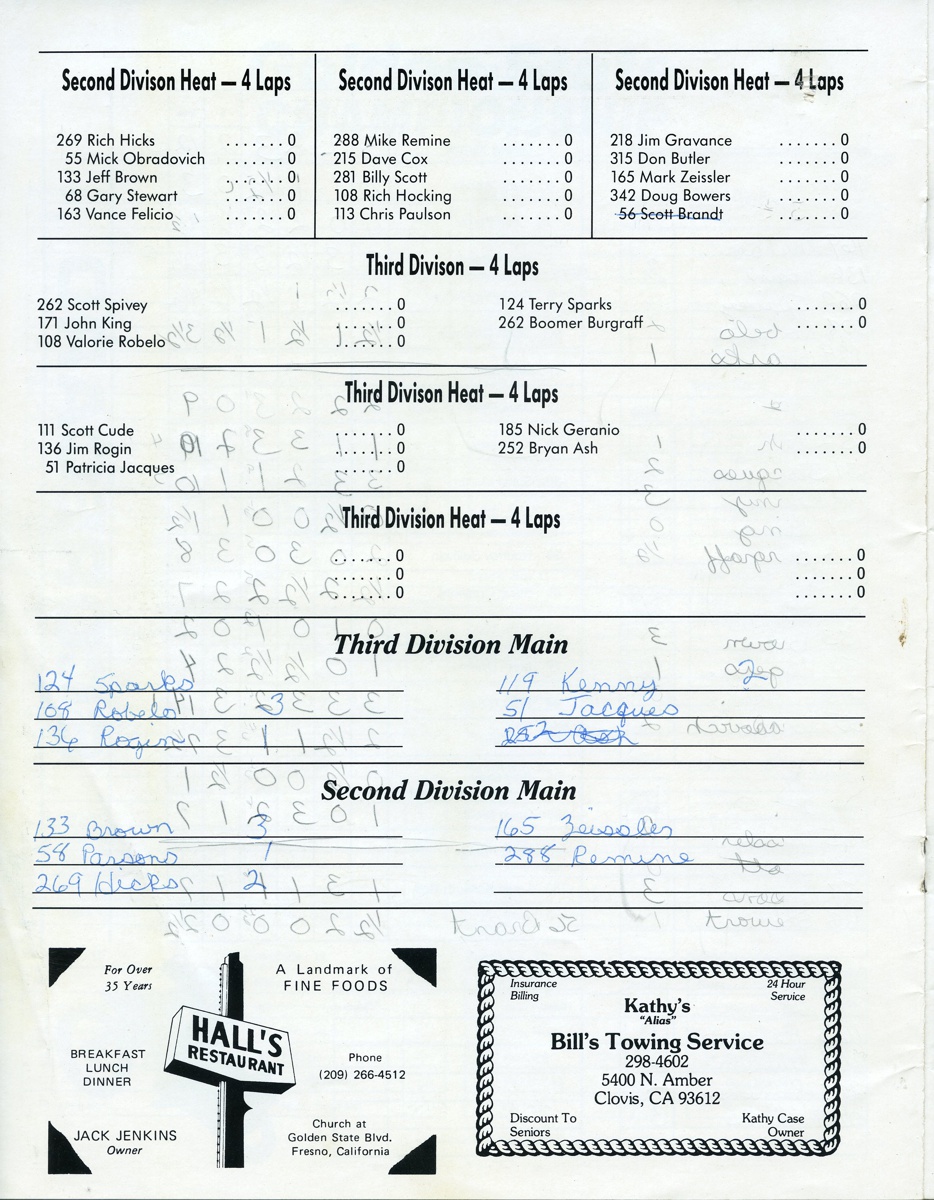 Second Divison Heat — 4 Laps
269 Rich Hicks ....... 0
55 Mick Obradovich ....... 0
133 Jeff Brown ....... 0
68 Gary Stewart ....... 0
163 Vance Felicio ....... 0
Second Divison Heat — 4 Laps
288 Mike Remine ....... 0
215 Dave Cox ....... 0
281 Billy Scott ....... 0
108 Rich Hocking ....... 0
113 Chris Paulson ....... 0
Second Divison Heat — 4 Laps
218 Jim Gravance ....... 0
315 Don Butler ....... 0
165 Mark Zeissler ....... 0
342 Doug Bowers ....... 0
56 Scott Brandt ....... 0
Third Divison — 4 Laps
262 Scott Spivey ....... 0
171 John King ....... 0
108 Valorie Robelo ....... 0
124 Terry Sparks ....... 0
262 Boomer Burgraff ....... 0
Third Divison Heat — 4 Laps
111 Scott Cude ....... 0
136 Jim Rogin ....... 0
51 Patricia Jacques ....... 0
185 Nick Geranio ....... 0
252 Bryan Ash ....... 0
Third Division Heat — 4 Laps
....... 0
....... 0
....... 0
....... 0
....... 0
....... 0
Third Division Main
124 Sparks
108 Robelo 3
136 Rogin 1
119 Kenny 2
51 Jacques
252 Ash
Second Division Main
133 Brown 3
58 Parsons 1
269 Hicks 2
165 Zeissler
288 Remine
For Over
35 Years
A Landmark of
FINE FOODS
HALL'S
RESTAURANT
BREAKFAST
LUNCH
DINNER
Phone
(209) 266-4512
JACK JENKINS
Owner
Church at
Golden State Blvd.
Fresno, California
Insurance
Billing
24 Hour
Service
Kathy's
"Alias"
Bill's Towing Service
298-4602
5400 N. Amber
Clovis, CA 93612
Discount To
Seniors
Kathy Case
Owner